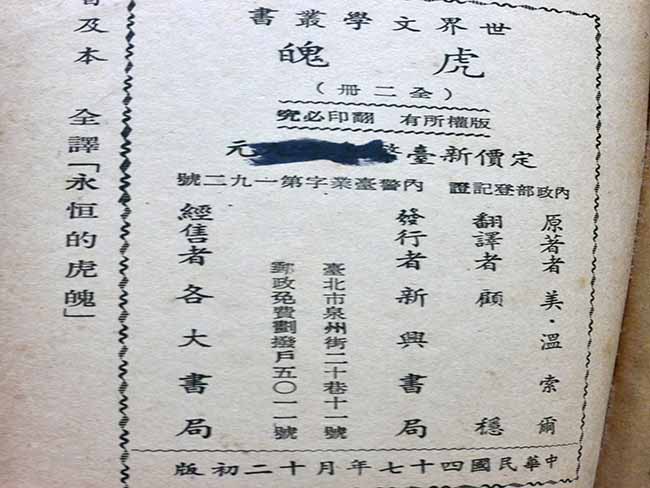 世界文學叢書
虎魄
(全二冊)
版權所有 翻印必究
定價新臺 元
內政部登記證 內警臺業字第一九二號
原著者 美·溫索爾
翻譯者 顧穩
發行者 新興書局
臺北市泉州街二十巷十一號
郵政免費劃撥戶五〇一一號
經售者 各大書局
中華民國四十七年月十二初版
普及本 全譯「永恒的虎魄」